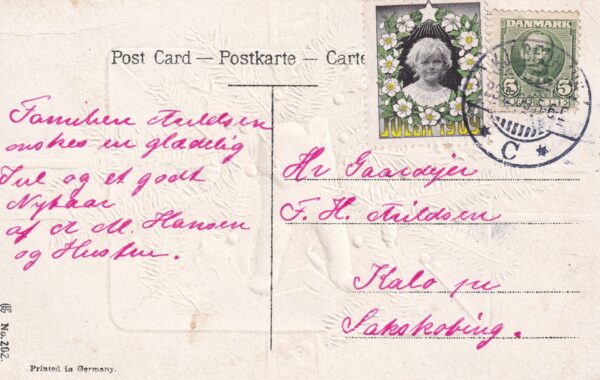 Post Card — Postkarte — Carte
JULEN 1909
DANMARK
5 5
C
Familien Arildsen
ønskes en glædelig
Jul og et godt
Nytaar
af A M. Hansen
og Hustru.
Hr Gaardejer
F. H. Arildsen
Kalø pr
Sakskøbing.
No. 202.
Printed in Germany.